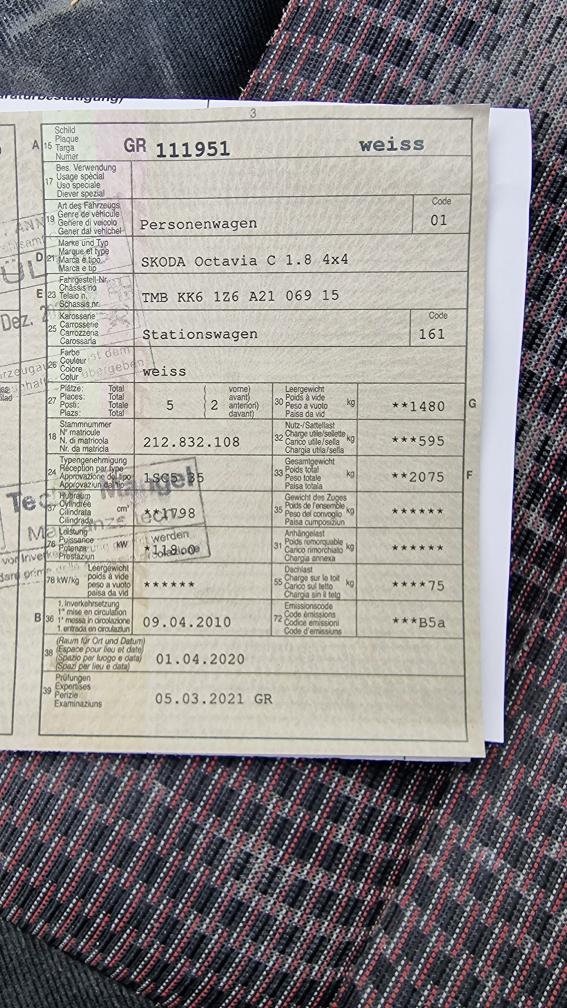 3
A 15 Schild
Plaque
Targa
Numer
GR 111951 weiss
17 Bes. Verwendung
Usage spécial
Uso speciale
Diever spezial
19 Art des Fahrzeugs
Genre de véhicule
Genere di veicolo
Gener dal vehichel
Personenwagen
Code
01
D 21 Marke und Typ
Marque et type
Marca e tipo
Marca e tip
SKODA Octavia C 1.8 4x4
E 23 Fahrgestell-Nr.
Châssis no
Telaio n.
Schassis nr.
TMB KK6 1Z6 A21 069 15
25 Karosserie
Carrosserie
Carrozzeria
Carossaria
Stationswagen
Code
161
26 Farbe
Couleur
Colore
Colur
weiss
27 Plätze: Total
Places: Total
Posti: Totale
Plazs: Total
5
2
vorne)
avant)
anteriori)
davant)
30 Leergewicht
Poids à vide
Peso a vuoto
Paisa da vid
kg
**1480
G
18 Stammnummer
N° matricule
N. di matricola
Nr. da matricla
212.832.108
32 Nutz-/Sattellast
Charge utile/sellette
Carico utile/sella
Chargia utila/sella
kg
***595
24 Typengenehmigung
Réception par type
Approvazione del tipo
Approvaziun dal tip
33 Gesamtgewicht
Poids total
Peso totale
Paisa totala
kg
**2075
F
37 Hubraum
Cylindrée
Cilindrata
Cilindrada
cm³
**1798
35 Gewicht des Zuges
Poids de l'ensemble
Peso del convoglio
Paisa cumposiziun
kg
******
76 Leistung
Puissance
Potenza
Prestaziun
kW
31 Anhängelast
Poids remorquable
Carico rimorchiato
Chargia annexa
kg
******
78 kW/kg
Leergewicht
poids à vide
peso a vuoto
paisa da vid
******
55 Dachlast
Charge sur le toit
Carico sul tetto
Chargia sin il tetg
kg
****75
B 36 1. Inverkehrsetzung
1re mise en circulation
1a messa in circolazione
1. entrada en circulaziun
09.04.2010
72 Emissionscode
Code émissions
Codice emissioni
Code d'emissiuns
***B5a
38 (Raum für Ort und Datum)
(Espace pour lieu et date)
(Spazio per luogo e data)
(Spazi per lieu e data)
01.04.2020
39 Prüfungen
Expertises
Perizie
Examinaziuns
05.03.2021 GR